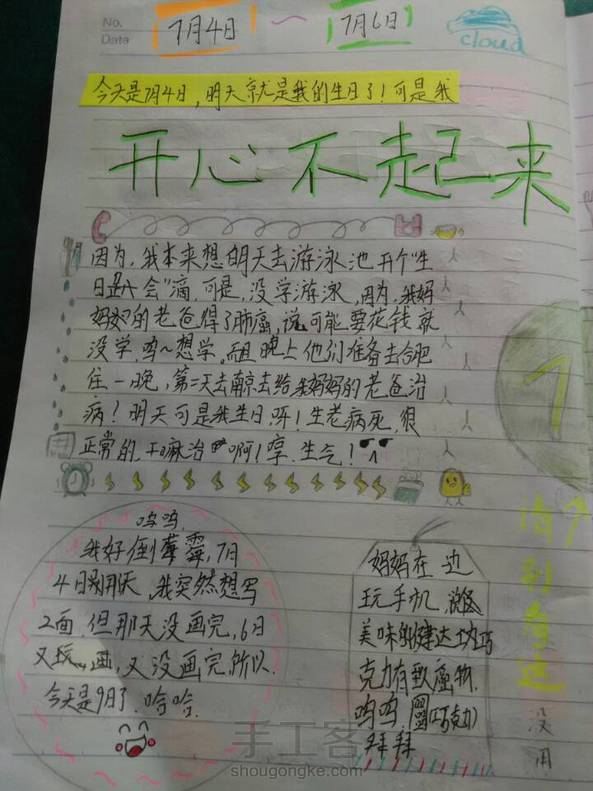 No.
Date
7月4日 ~ 7月6日
cloud
今天是7月4日，明天就是我的生日了！可是我
开心不起来
因为，我本来想明天去游泳池开个"生
日大会"滴，可是，没学游泳，因为，我妈
妈妈的老爸得了肺癌，说可能要花钱就
没学，呜~想学，而且晚上他们准备去合肥
住一晚，第二天去南京去给我妈妈的老爸治
病？明天可是我生日，呀！生老病死，很
正常的，干嘛治啊！哼，生气！
呜呜，
我好倒霉，7月
4日别聊天，我突然想写
2面，但那天没画完，6日
又玩，画，又没画完，所以，
今天是9日了，哈哈，
妈妈在一边
玩手机，说
美味的健达巧
克力有致癌物，
呜呜，(巧克力)
拜拜
7
没
用
手工客
shougongke.com